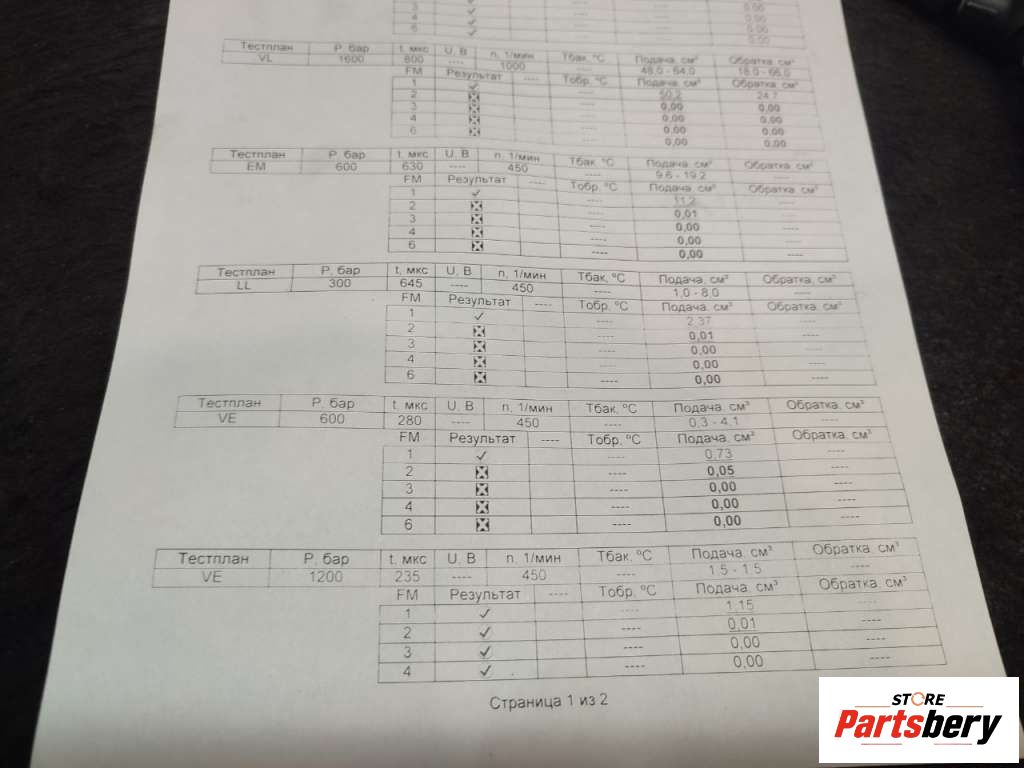 3 ✓ ---- 0,00
4 ✓ ---- 0,00
6 ✓ ---- 0,00
0,00
Тестплан P, бар t, мкс U, В n, 1/мин Tбак, ºC Подача, см³ Обратка, см³
VL 1600 800 ---- 1000 ---- 48,0 - 64,0 18,0 - 66,0
FM Результат ---- Tобр, ºC Подача, см³ Обратка, см³
1 ✓ ---- 50,2 24,7
2 ---- 0,00 0,00
3 ---- 0,00 0,00
4 ---- 0,00 0,00
6 ---- 0,00 0,00
Тестплан P, бар t, мкс U, В n, 1/мин Tбак, ºC Подача, см³ Обратка, см³
EM 600 630 ---- 450 ---- 9,6 - 19,2 ----
FM Результат ---- Tобр, ºC Подача, см³ Обратка, см³
1 ✓ ---- 11,2 ----
2 ---- 0,01 ----
3 ---- 0,00 ----
4 ---- 0,00 ----
6 ---- 0,00 ----
Тестплан P, бар t, мкс U, В n, 1/мин Tбак, ºC Подача, см³ Обратка, см³
LL 300 645 ---- 450 ---- 1,0 - 8,0 ----
FM Результат ---- Tобр, ºC Подача, см³ Обратка, см³
1 ✓ ---- 2,37 ----
2 ---- 0,01 ----
3 ---- 0,00 ----
4 ---- 0,00 ----
6 ---- 0,00 ----
Тестплан P, бар t, мкс U, В n, 1/мин Tбак, ºC Подача, см³ Обратка, см³
VE 600 280 ---- 450 ---- 0,3 - 4,1 ----
FM Результат ---- Tобр, ºC Подача, см³ Обратка, см³
1 ✓ ---- 0,73 ----
2 ---- 0,05 ----
3 ---- 0,00 ----
4 ---- 0,00 ----
6 ---- 0,00 ----
Тестплан P, бар t, мкс U, В n, 1/мин Tбак, ºC Подача, см³ Обратка, см³
VE 1200 235 ---- 450 ---- 1,5 - 1,5 ----
FM Результат ---- Tобр, ºC Подача, см³ Обратка, см³
1 ✓ ---- 1,15 ----
2 ✓ ---- 0,01 ----
3 ✓ ---- 0,00 ----
4 ✓ ---- 0,00 ----
Страница 1 из 2
STORE
Partsbery